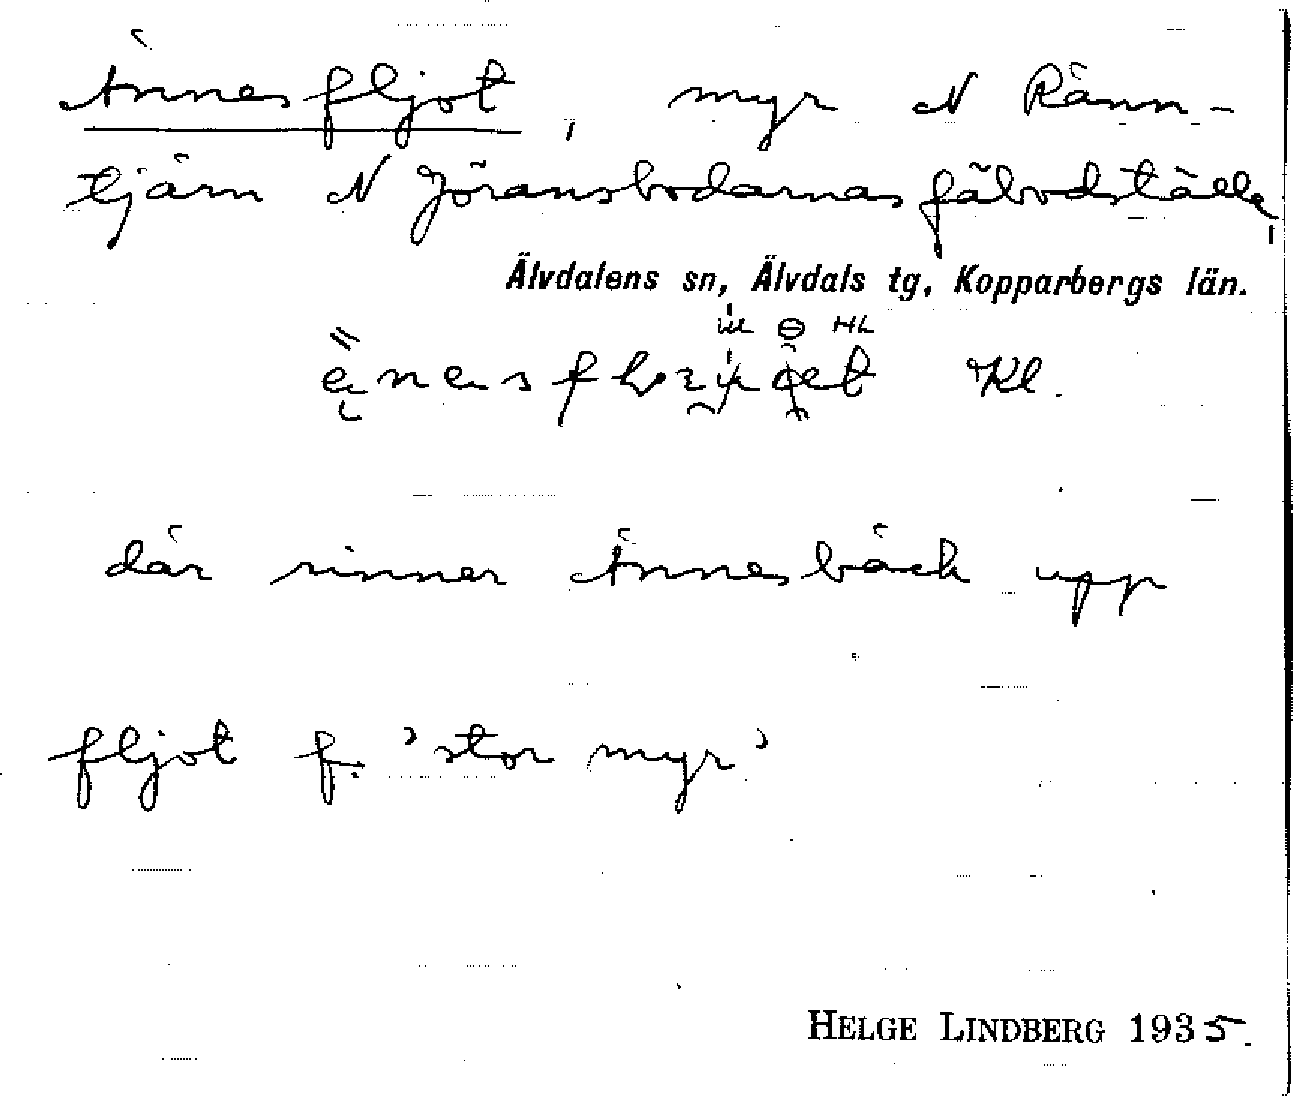 Ännesfljot, myr N Ränn-
tjärn N Jöransbodarnas fäbodställe,
Älvdalens sn, Älvdals tg, Kopparbergs län.
HL
Kl.
där rinner Ännesbäck upp
fljot f. 'stor myr'
HELGE LINDBERG 1935.